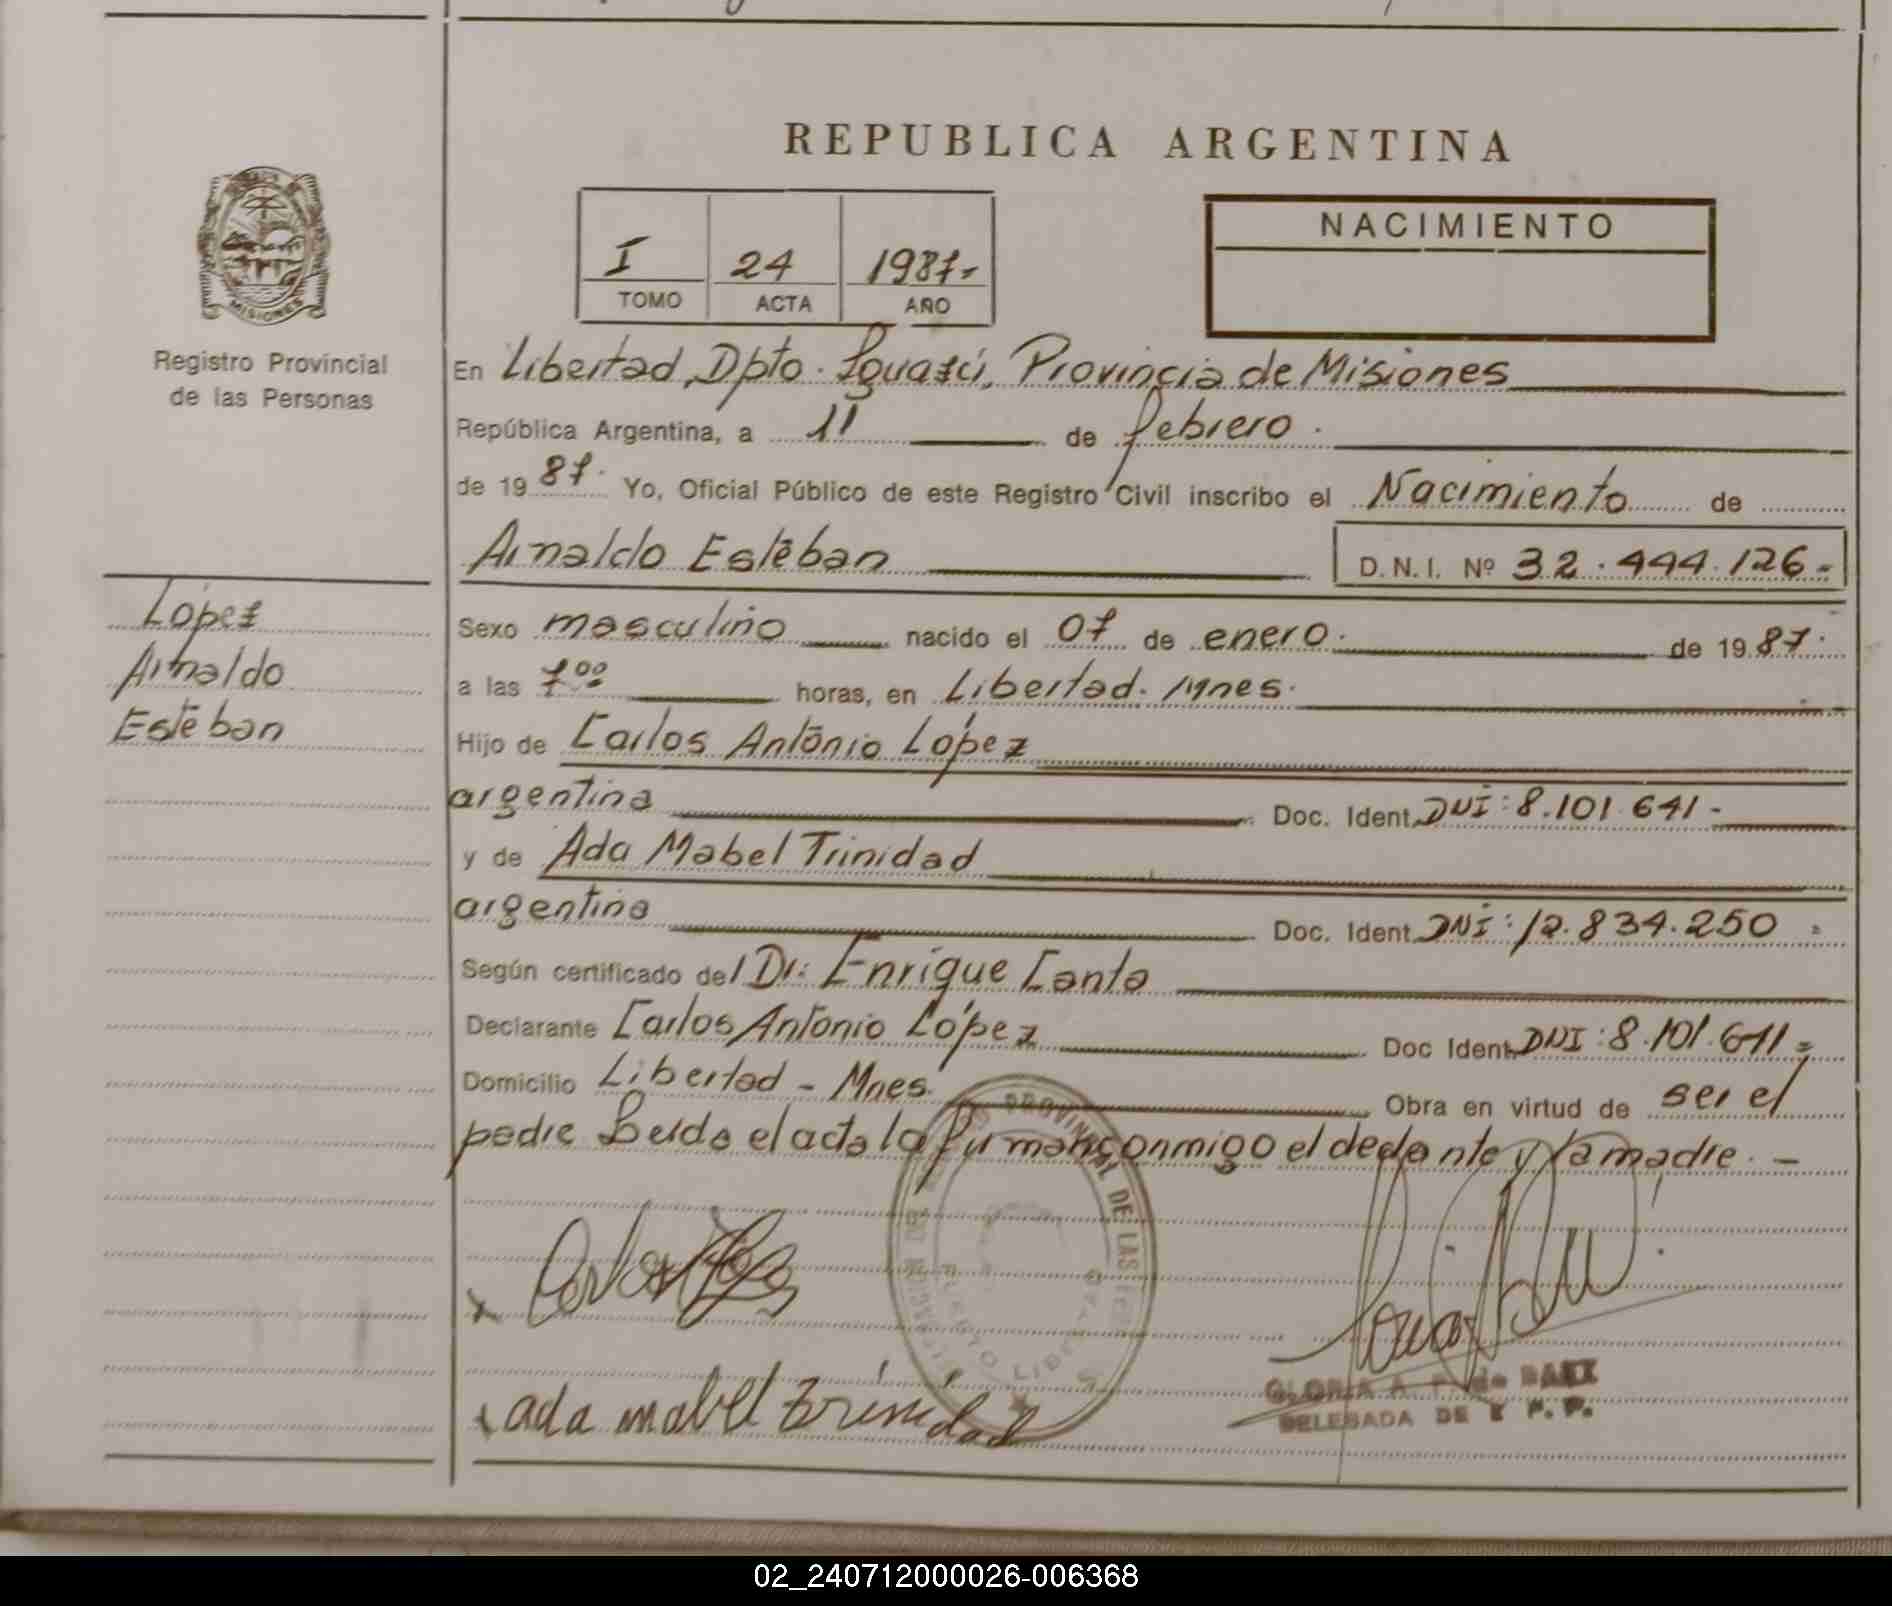 REPUBLICA ARGENTINA
I 24 1987-
TOMO ACTA AÑO
NACIMIENTO
MISIONES
Registro Provincial
de las Personas
López
Arnaldo
Esteban
En Libertad, Dpto. Iguazú, Provincia de Misiones
República Argentina, a 11 de febrero.
de 19 87. Yo, Oficial Público de este Registro Civil inscribo el Nacimiento de
Arnaldo Esteban D.N.I. Nº 32.444.126-
Sexo masculino nacido el 07 de enero. de 19 87.
a las 7 00 horas, en Libertad. Mnes.
Hijo de Carlos Antonio López
argentina Doc. Ident. DNI: 8.101.641-
y de Ada Mabel Trinidad
argentina Doc. Ident. DNI: 12.834.250
Según certificado del Dr. Enrique Canta
Declarante Carlos Antonio López Doc Ident. DNI: 8.101.641-
Domicilio Libertad - Mnes. Obra en virtud de ser el
padre Leida el acta la firman conmigo el declante y la madre. -
PROVINCIAL DE LAS
PUERTO LIBERTAD
ada mabel Trinidad
GLORIA A. de BAEZ
DELEGADA DE R P. P.
02_240712000026-006368